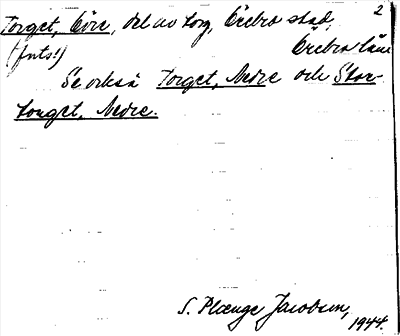 2
Torget, Övre, del av torg, Örebro stad,
(forts.) Örebro län
Se också Torget, Nedre och Stor-
torget, Nedre.
S. Plænge Jacobson,
1944.